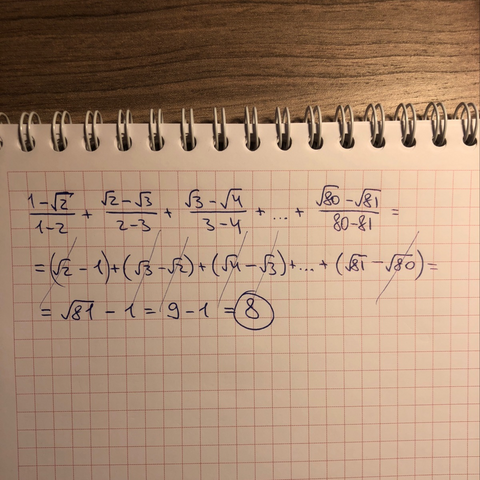 (1-√2)/(1-2) + (√2-√3)/(2-3) + (√3-√4)/(3-4) + ... + (√80-√81)/(80-81) =
= (√2 - 1) + (√3 - √2) + (√4 - √3) + ... + (√81 - √80) =
= √81 - 1 = 9 - 1 = 8